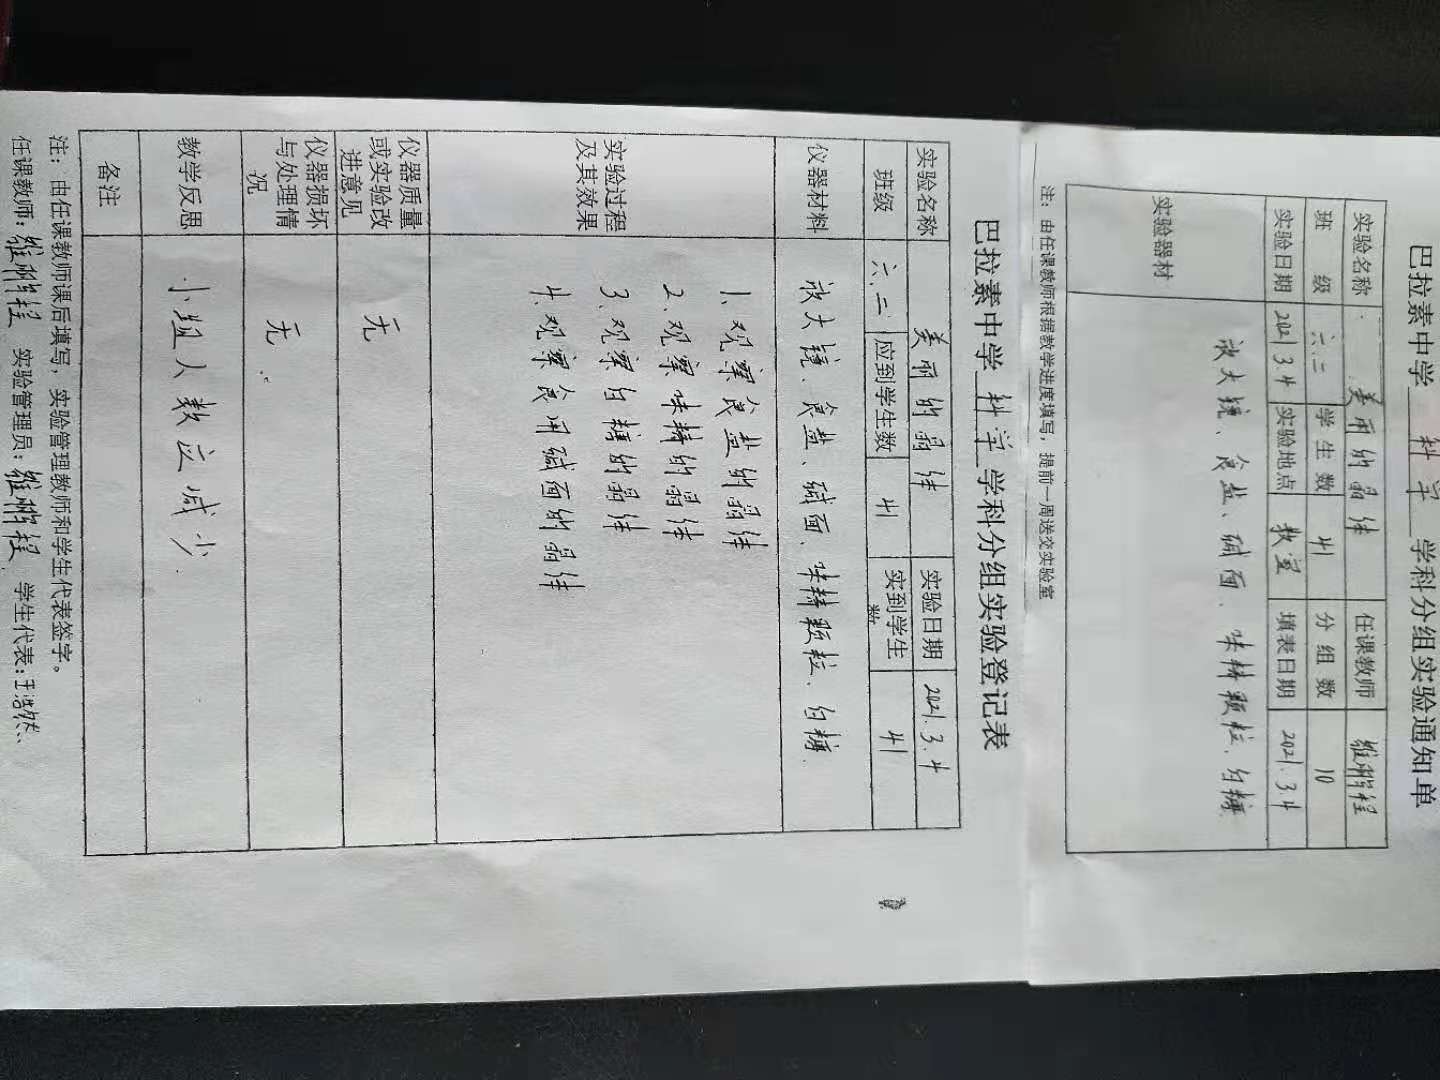 巴拉素中学 科学 学科分组实验通知单
实验名称 美丽的晶体 任课教师
班 级 六、二 学生数 41 分组数 10
实验日期 2021.3.4 实验地点 教室 填表日期 2021.3.4
实验器材 放大镜、食盐、碱面、味精颗粒、白糖
注：由任课教师根据教学进度填写，提前一周送交实验室
巴拉素中学 科学 学科分组实验登记表
实验名称 美丽的晶体 实验日期 2021.3.4
班级 六、二 应到学生数 41 实到学生数 41
仪器材料 放大镜、食盐、碱面、味精颗粒、白糖
实验过程及其效果
1、观察食盐的晶体
2、观察味精的晶体
3、观察白糖的晶体
4、观察食用碱面的晶体
仪器质量或实验改进意见 无
仪器损坏与处理情况 无
教学反思 小组人数应减少.
备注
注：由任课教师课后填写，实验管理教师和学生代表签字。
任课教师： 实验管理员： 学生代表：王浩然